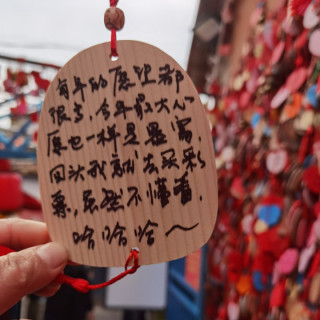 每年的愿望都
很多，今年最大心
愿也一样是暴富
回头我就去买彩
票，虽然不懂看，
哈哈哈～